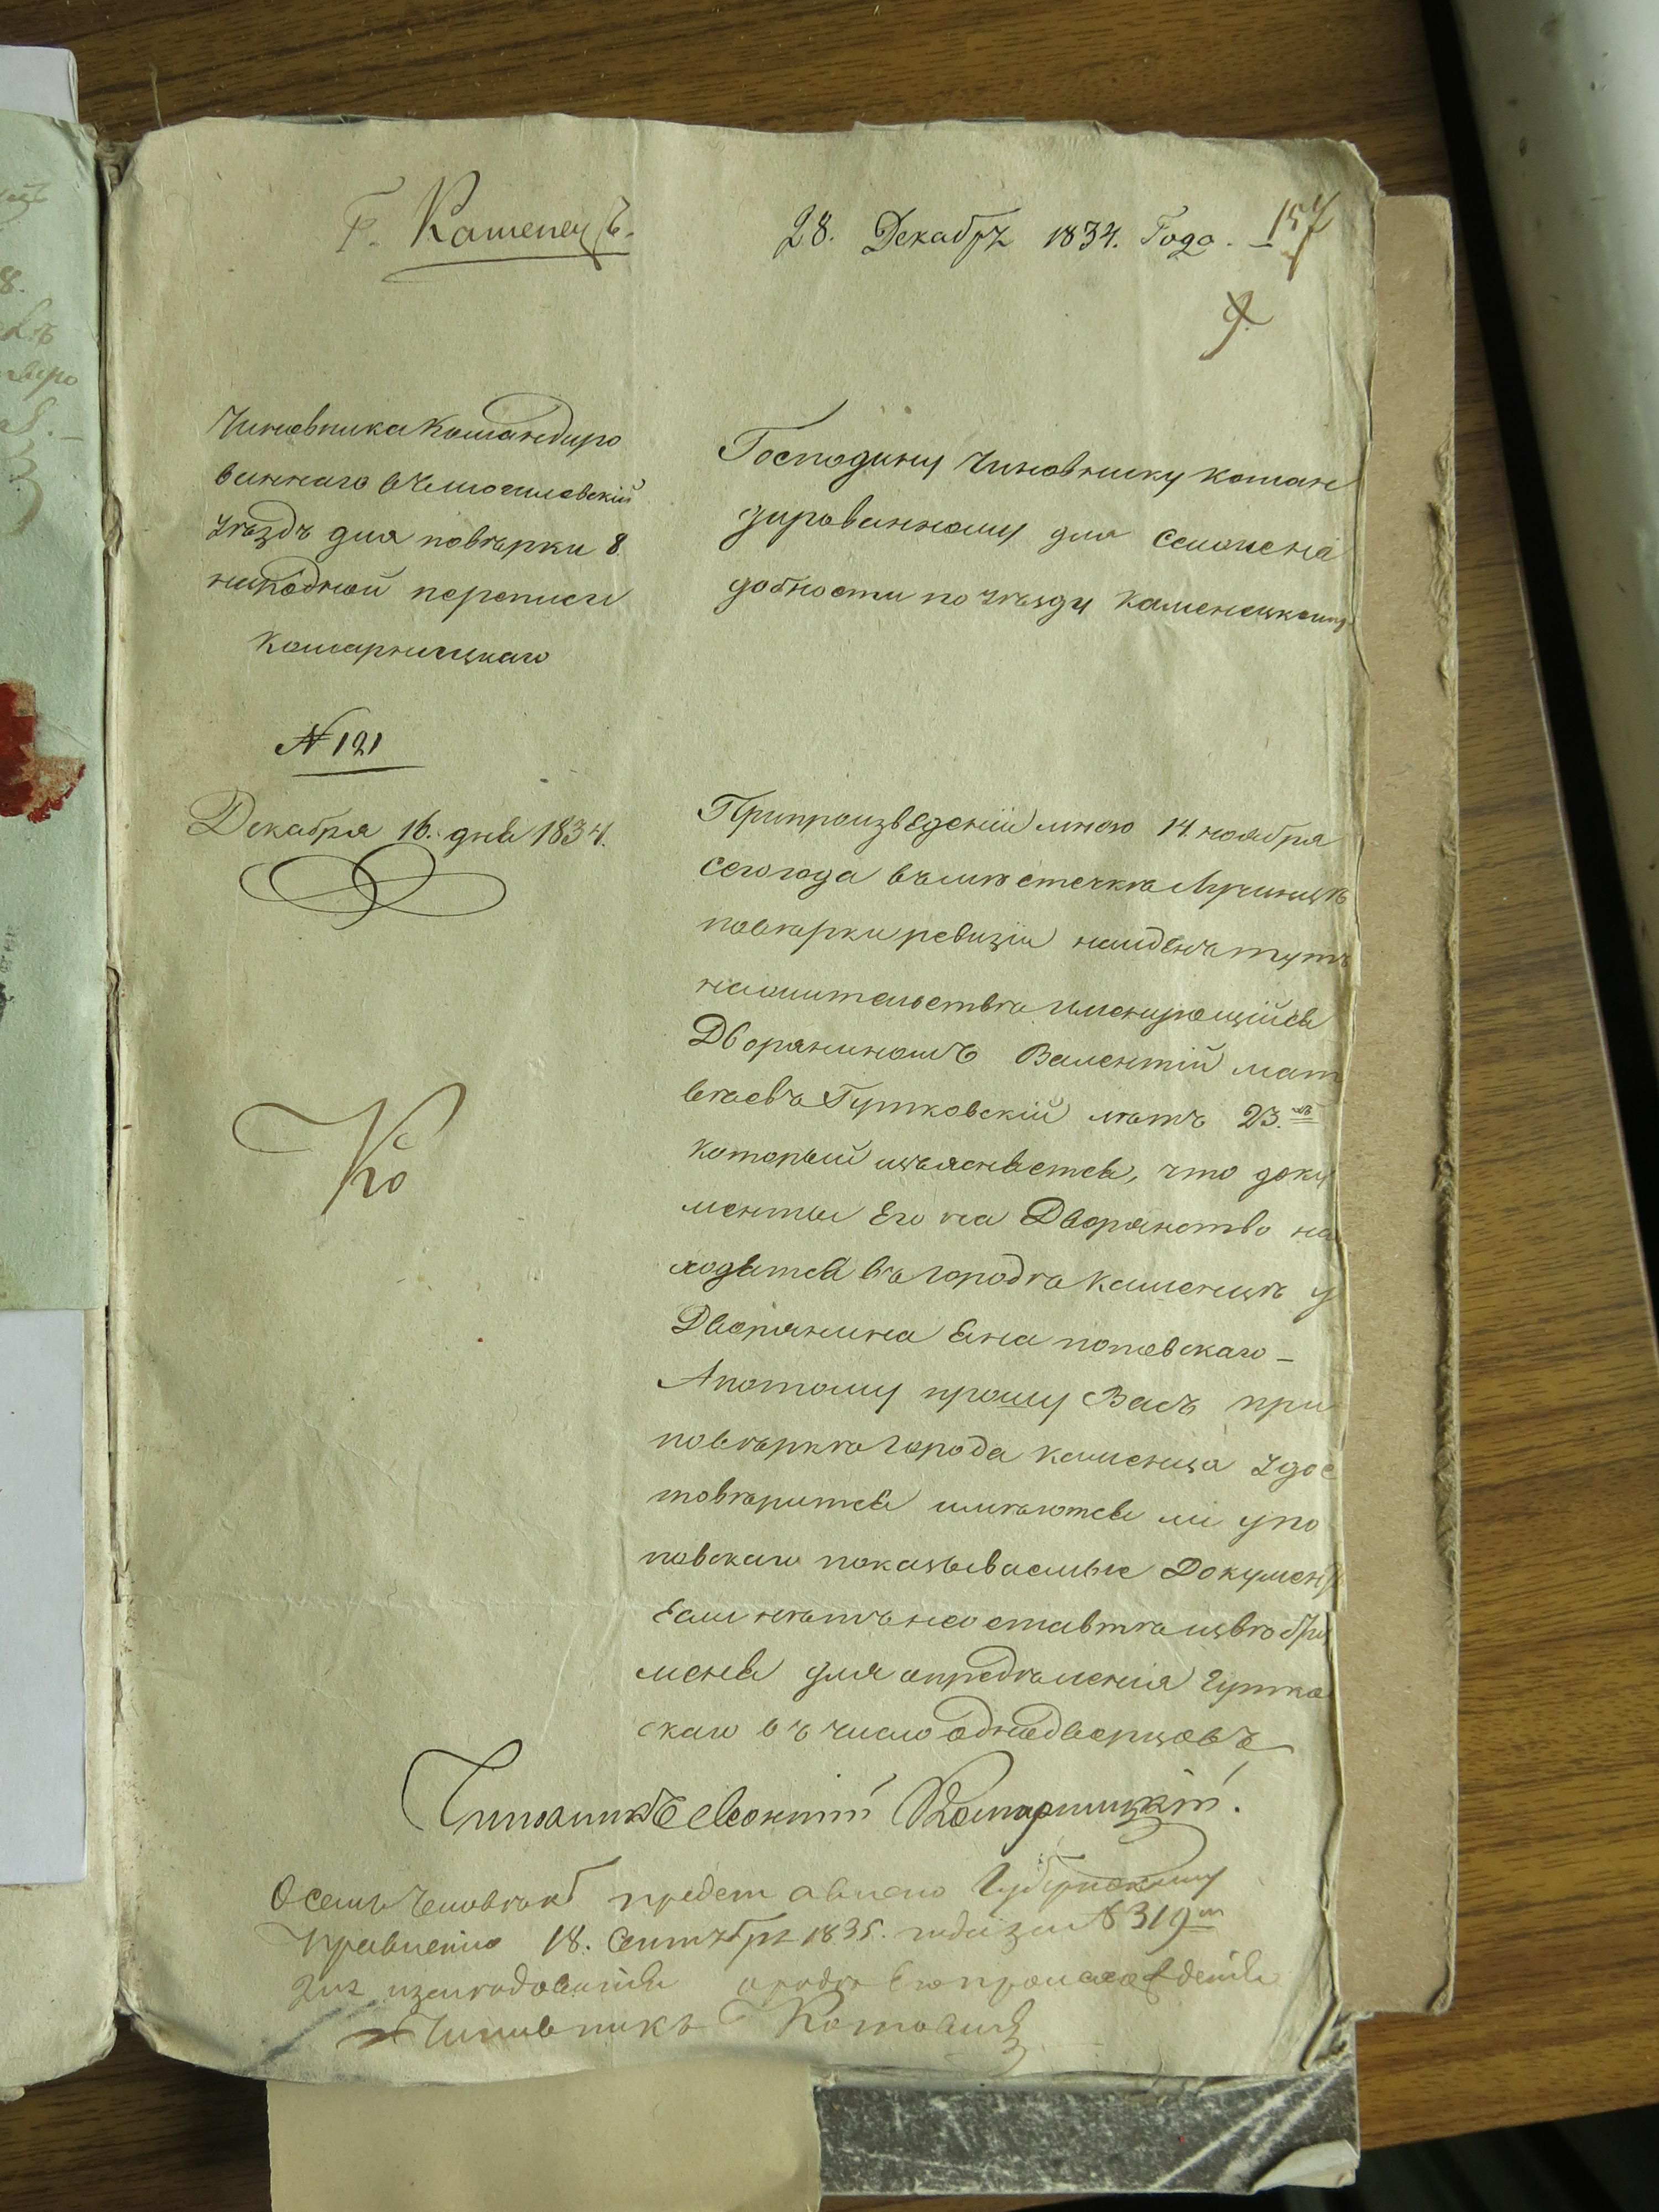 Г. Каменецъ.
28. Декабрѧ 1834. Года.
157
9.
Чиновника Командиро
ваннаго въ Могилевскій
уѣздъ для повѣрки 8
народной переписи
Комарницкаго
№ 121
Декабря 16. дня 1834.
Господину Чиновнику коман
дированному для
добности по уѣзду Каменецкому
При произведеніи мною 14 ноября
сего года въ мѣстечкѣ Лучинцѣ
повѣрки ревизіи найденъ тутъ
на жительствѣ именующійся
Дворяниномъ Валентій Мат
вѣевъ Гутковскій лѣтъ 23.
который изъясняется, что доку
менты Его на Дворянство на
ходятся въ городѣ Каменцѣ у
Дворянина Яна Поповскаго –
А потому прошу Васъ при
повѣркѣ города Каменца удос
товѣрится имѣются ли у По
повскаго показываемые Докумен
Если нѣтъ не оставте
меня для опредѣленія Гутков
скаго въ число однодворцовъ
Чиновникъ Леонтій Комарницкій.
Ко
О семъ Человѣкѣ представлено Губернскому
Правленію 18. Сентября 1835. года за № 319
для изслѣдованія о родѣ Его происхожденія
Чиновникъ Котовичъ